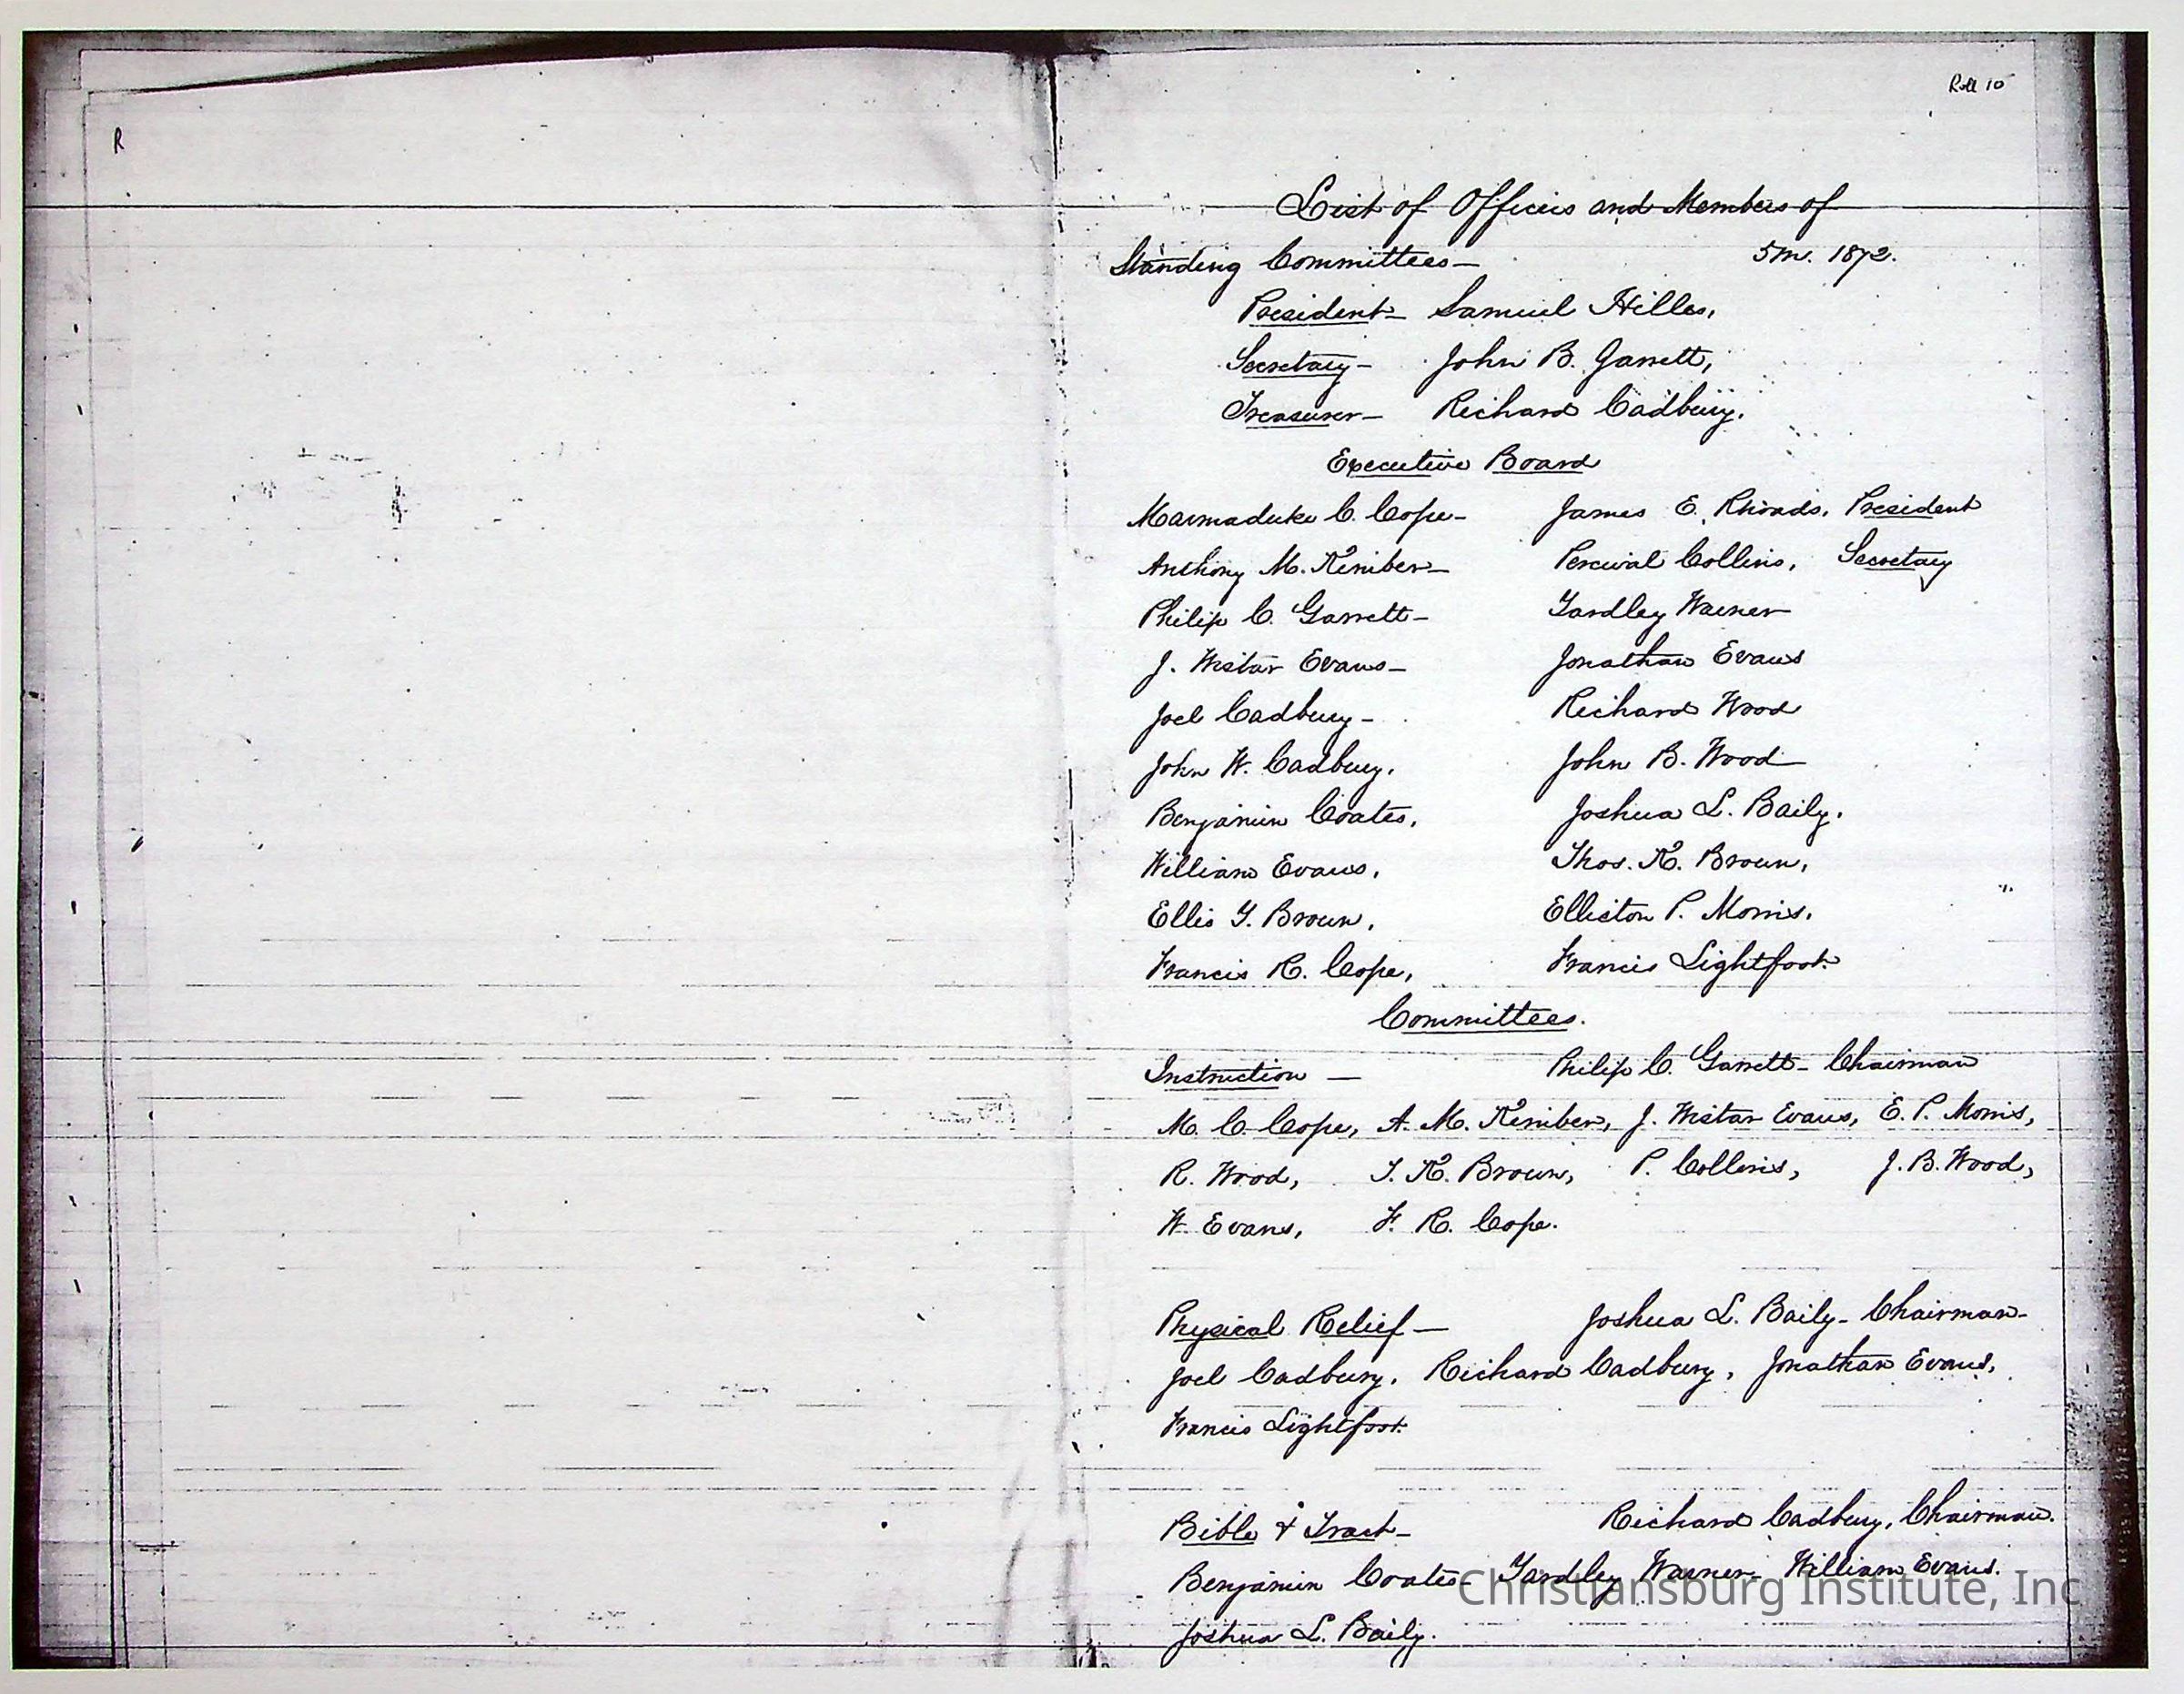 Roll 10
R
List of Officers and Members of
Standing Committees— 5m. 1872.
President— Samuel Hilles,
Secretary— John B. Garrett,
Treasurer— Richard Cadbury.
Executive Board
Marmaduke C. Cope— James E. Rhoads. President
Anthony M. Kimber— Percival Collins, Secretary
Philip C. Garrett— Yardley Warner
J. Wistar Evans— Jonathan Evans
Joel Cadbury— Richard Wood
John W. Cadbury. John B. Wood
Benjamin Coates, Joshua L. Baily.
William Evans, Thos. K. Brown,
Ellis Y. Brown, Elliston P. Morris.
Francis R. Cope, Francis Lightfoot.
Committees.
Instruction — Philip C. Garrett— Chairman
M. C. Cope, A. M. Kimber, J. Wistar Evans, E. P. Morris,
R. Wood, T. K. Brown, P. Collins, J. B. Wood,
W. Evans, F. R. Cope.
Physical Relief— Joshua L. Baily— Chairman—
Joel Cadbury, Richard Cadbury, Jonathan Evans,
Francis Lightfoot.
Bible & Tract— Richard Cadbury, Chairman.
Benjamin Coates— Yardley Warner— William Evans.
Joshua L. Baily.
Christiansburg Institute, Inc